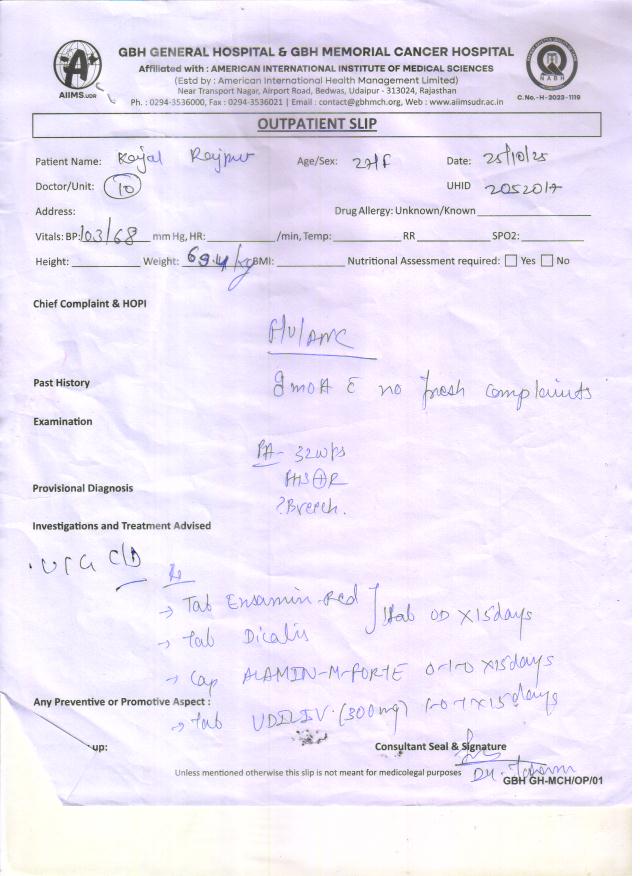 GBH GENERAL HOSPITAL & GBH MEMORIAL CANCER HOSPITAL
Affiliated with : AMERICAN INTERNATIONAL INSTITUTE OF MEDICAL SCIENCES
(Estd by : American International Health Management Limited)
Near Transport Nagar, Airport Road, Bedwas, Udaipur - 313024, Rajasthan
Ph. : 0294-3536000, Fax : 0294-3536021 | Email : contact@gbhmch.org, Web : www.aiimsudr.ac.in
AIIMS.UDR
NABH
C.No.-H-2023-1119
OUTPATIENT SLIP
Patient Name: Kajal Rajput Age/Sex: 27/F Date: 25/10/25
Doctor/Unit: 10 UHID 2052017
Address: Drug Allergy: Unknown/Known
Vitals: BP: 103/68 mm Hg, HR: /min, Temp: RR SPO2:
Height: Weight: 69.4/kg BMI: Nutritional Assessment required: Yes No
Chief Complaint & HOPI
F/U/ANC
Past History
8moA c no fresh complaints
Examination
PA- 32wks
FHS⊕R
Provisional Diagnosis
?Breech.
Investigations and Treatment Advised
USG C/D
Rx
→ Tab Ensamin-Red } 1tab OD X15days
→ Tab Dicalis
→ Cap ALAMIN-M-FORTE 0-1-0 X15days
Any Preventive or Promotive Aspect :
→ Tab UDILIV (300mg) 1-0-1 X15days
up:
Consultant Seal & Signature
Unless mentioned otherwise this slip is not meant for medicolegal purposes
Dr.
GBH GH-MCH/OP/01